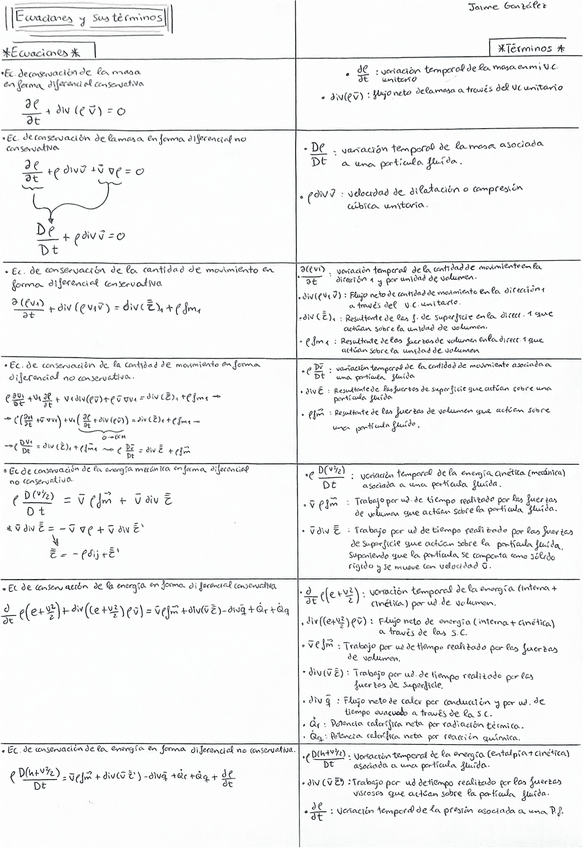 Jaime González
Ecuaciones y sus términos
*Ecuaciones*
*Términos*
• Ec. de conservación de la masa
en forma diferencial conservativa
∂ρ/∂t + div (ρ v̄) = 0
• ∂ρ/∂t : variación temporal de la masa en mi V.C.
unitario
• div(ρv̄) : flujo neto de masa a través del VC unitario
• Ec. de conservación de la masa en forma diferencial no
conservativa
∂ρ/∂t + ρ div v̄ + v̄ ∇ρ = 0
Dρ/Dt + ρ div v̄ = 0
• Dρ/Dt : variación temporal de la masa asociada
a una partícula fluida.
• ρ div v̄ : velocidad de dilatación o compresión
cúbica unitaria.
• Ec. de conservación de la cantidad de movimiento en
forma diferencial conservativa
∂(ρv₁)/∂t + div (ρv₁v̄) = div(τ̿)₁ + ρfm₁
∂(ρv₁)/∂t : variación temporal de la cantidad de movimiento en la
dirección 1 y por unidad de volumen.
• div(ρv₁v̄) : Flujo neto de cantidad de movimiento en la dirección 1
a través del V.C. unitario.
• div(τ̿)₁ : Resultante de las f. de superficie en la direcc. 1 que
actúan sobre la unidad de volumen.
• ρfm₁ : Resultante de las fuerzas de volumen en la direcc 1 que
actúan sobre la unidad de volumen
• Ec. de conservación de la cantidad de movimiento en forma
diferencial no conservativa.
ρ ∂v₁/∂t + v₁ ∂ρ/∂t + v₁ div(ρv̄) + ρv̄ ∇v₁ = div(τ̿)₁ + ρfm₁ →
→ ρ(∂v₁/∂t + v̄ ∇v₁) + v₁(∂ρ/∂t + div(ρv̄)) = div(τ̿)₁ + ρfm₁ →
→ ρ Dv₁/Dt = div(τ̿)₁ + ρfm₁ → ρ Dv̄/Dt = div τ̿ + ρf̄m
• ρ Dv̄/Dt : variación temporal de la cantidad de movimiento asociada a
una partícula fluida
• div τ̿ : Resultante de las fuerzas de superficie que actúan sobre una
partícula fluida
• ρf̄m : Resultante de las fuerzas de volumen que actúan sobre
una partícula fluida.
• Ec de conservación de la energía mecánica en forma diferencial
no conservativa
ρ D(v²/2)/Dt = v̄ ρf̄m + v̄ div τ̿
* v̄ div τ̿ = -v̄ ∇p + v̄ div τ̿'
τ̿ = -pδij + τ̿'
• ρ D(v²/2)/Dt : variación temporal de la energía cinética (mecánica)
asociada a una partícula fluida.
• v̄ ρf̄m : Trabajo por ud. de tiempo realizado por las fuerzas
de volumen que actúan sobre la partícula fluida.
• v̄ div τ̿ : Trabajo por ud de tiempo realizado por las fuerzas
de superficie que actúan sobre la partícula fluida,
suponiendo que la partícula se comporta como sólido
rígido y se mueve con velocidad v̄.
• Ec de conservación de la energía en forma diferencial conservativa
∂/∂t ρ(e+v²/2) + div((e+v²/2)ρv̄) = v̄ρf̄m + div(v̄ τ̿) - div q̄ + Q̇r + Q̇q
• ∂/∂t ρ(e+v²/2) : variación temporal de la energía (interna +
cinética) por ud de volumen.
• div((e+v²/2)ρv̄) : Flujo neto de energía (interna + cinética)
a través de las S.C.
• v̄ρf̄m : Trabajo por ud de tiempo realizado por las fuerzas
de volumen.
• div(v̄τ̿) : Trabajo por ud. de tiempo realizado por las
fuerzas de superficie.
• div q̄ : Flujo neto de calor por conducción y por ud. de
tiempo evacuado a través de la S.C.
• Q̇r : Potencia calorífica neta por radiación térmica.
• Q̇q : Potencia calorífica neta por reacción química.
• Ec. de conservación de la energía en forma diferencial no conservativa.
ρ D(h+v²/2)/Dt = v̄ρf̄m + div(v̄ τ̿') - div q̄ + Q̇r + Q̇q + ∂p/∂t
• ρ D(h+v²/2)/Dt : Variación temporal de la energía (entalpía + cinética)
asociada a una partícula fluida.
• div(v̄ τ̿') : Trabajo por ud de tiempo realizado por las fuerzas
viscosas que actúan sobre la partícula fluida.
• ∂p/∂t : variación temporal de la presión asociada a una P.f.